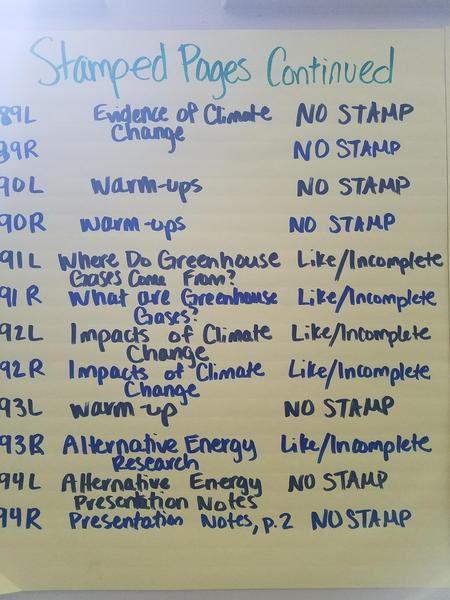 Stamped Pages Continued
89L Evidence of Climate Change NO STAMP
39R NO STAMP
90L Warm-ups NO STAMP
90R Warm-ups NO STAMP
91L Where Do Greenhouse Gases Come From? Like/Incomplete
91R What are Greenhouse Gases? Like/Incomplete
92L Impacts of Climate Change Like/Incomplete
92R Impacts of Climate Change Like/Incomplete
93L Warm-up NO STAMP
93R Alternative Energy Research Like/Incomplete
94L Alternative Energy Presentation Notes NO STAMP
94R Presentation Notes, p.2 NO STAMP